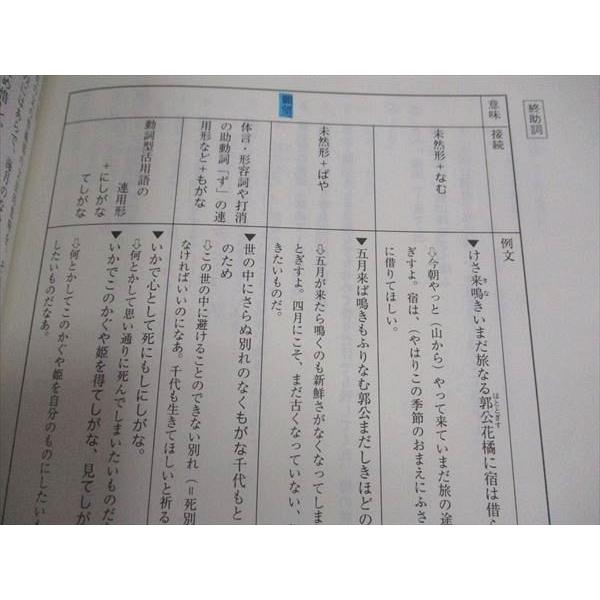 終助詞
意味
接続
例文
願望
未然形＋なむ
▼けさ来鳴きいまだ旅なる郭公花橘に宿は借ら
きな
ほととぎす
⇩今朝やっと（山から）やって来ていまだ旅の途
ぎすよ。宿は、（やはりこの季節のおまえにふさ
に借りてほしい。
未然形＋ばや
▼五月来ば鳴きもふりなむ郭公まだしきほどの
⇩五月が来たら鳴くのも新鮮さがなくなってしま
とぎすよ。四月にこそ、まだ古くなっていない、
きたいものだ。
体言・形容詞や打消
の助動詞「ず」の連
用形など＋もがな
▼世の中にさらぬ別れのなくもがな千代もと
のため
⇩この世の中に避けることのできない別れ（＝死別
なければいいのになあ。千代も生きてほしいと祈る
動詞型活用語の
連用形
＋にしがな
てしがな
▼いかで心として死にもしにしがな。
⇩何とかして思い通りに死んでしまいたいものだ
▼いかでこのかぐや姫を得てしがな、見てしが
⇩何とかしてこのかぐや姫を自分のものにしたいも
したいものだなあ。